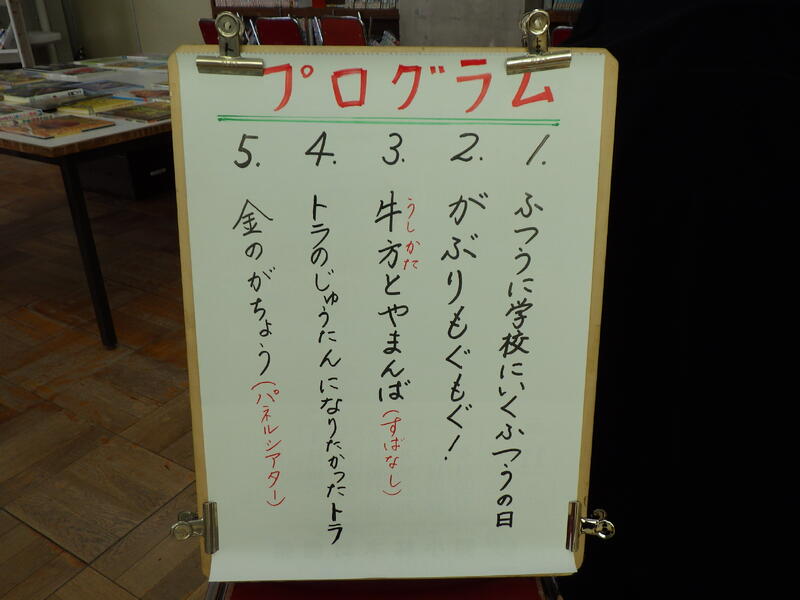 プログラム
1. ふつうに学校にいくふつうの日
2. がぶりもぐもぐ!
3. 牛方とやまんば(すばなし)
うしかた
4. トラのじゅうたんになりたかったトラ
5. 金のがちょう(パネルシアター)